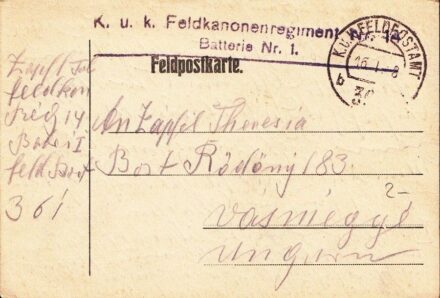 K. u. k. Feldkanonenregiment Nr. 14
Batterie Nr. 1.
K.u.K. FELDPOSTAMT
16. I. 8
b
Feldpostkarte.
Zapfl
feldkon
Reg 14
Bat I
feld Post
361
An Zapfl Theresia
Post Rödöny 183
2-
vasmegye
Ungarn